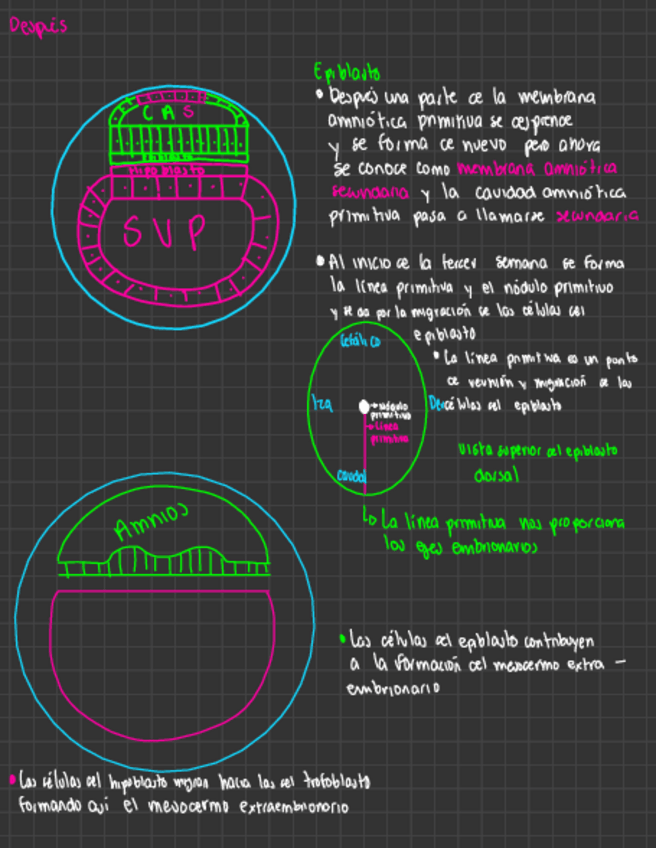 Después
C A S
Epiblasto
Hipoblasto
S V P
Epiblasto
• Después una parte de la membrana
amniótica primitiva se desprende
y se forma de nuevo pero ahora
se conoce como membrana amniótica
secundaria y la cavidad amniótica
primitiva pasa a llamarse secundaria
• Al inicio de la tercer semana se forma
la línea primitiva y el nódulo primitivo
y se da por la migración de las células del
epiblasto
Cefálico
Izq
→ nódulo
primitivo
→ Línea
primitiva
Der
Caudal
• La línea primitiva es un punto
de reunión y migración de las
células del epiblasto
vista superior del epiblasto
dorsal
↳ La línea primitiva nos proporciona
los ejes embrionarios
Amnios
• Las células del epiblasto contribuyen
a la formación del mesodermo extra –
embrionario
• Las células del hipoblasto migran hacia las del trofoblasto
formando así el mesodermo extraembrionario